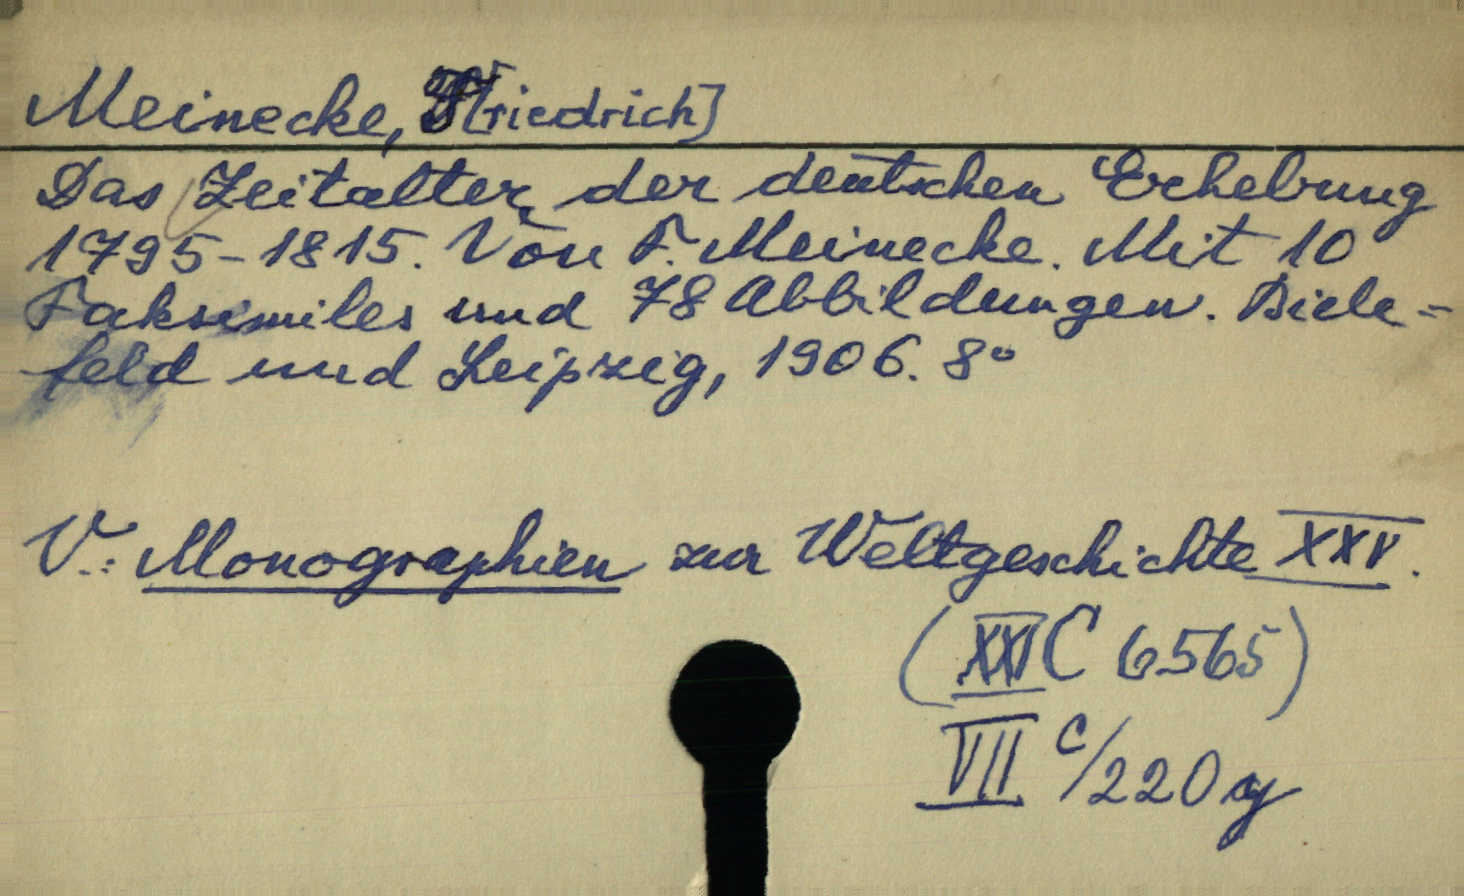 Meinecke, F[riedrich]
Das Zeitalter der deutschen Erhebung
1795-1815. Von F. Meinecke. Mit 10
Faksimiles und 78 Abbildungen. Biele-
feld und Leipzig, 1906. 8°
V.: Monographien zur Weltgeschichte XXV.
(XXI C 6565)
VII C/220